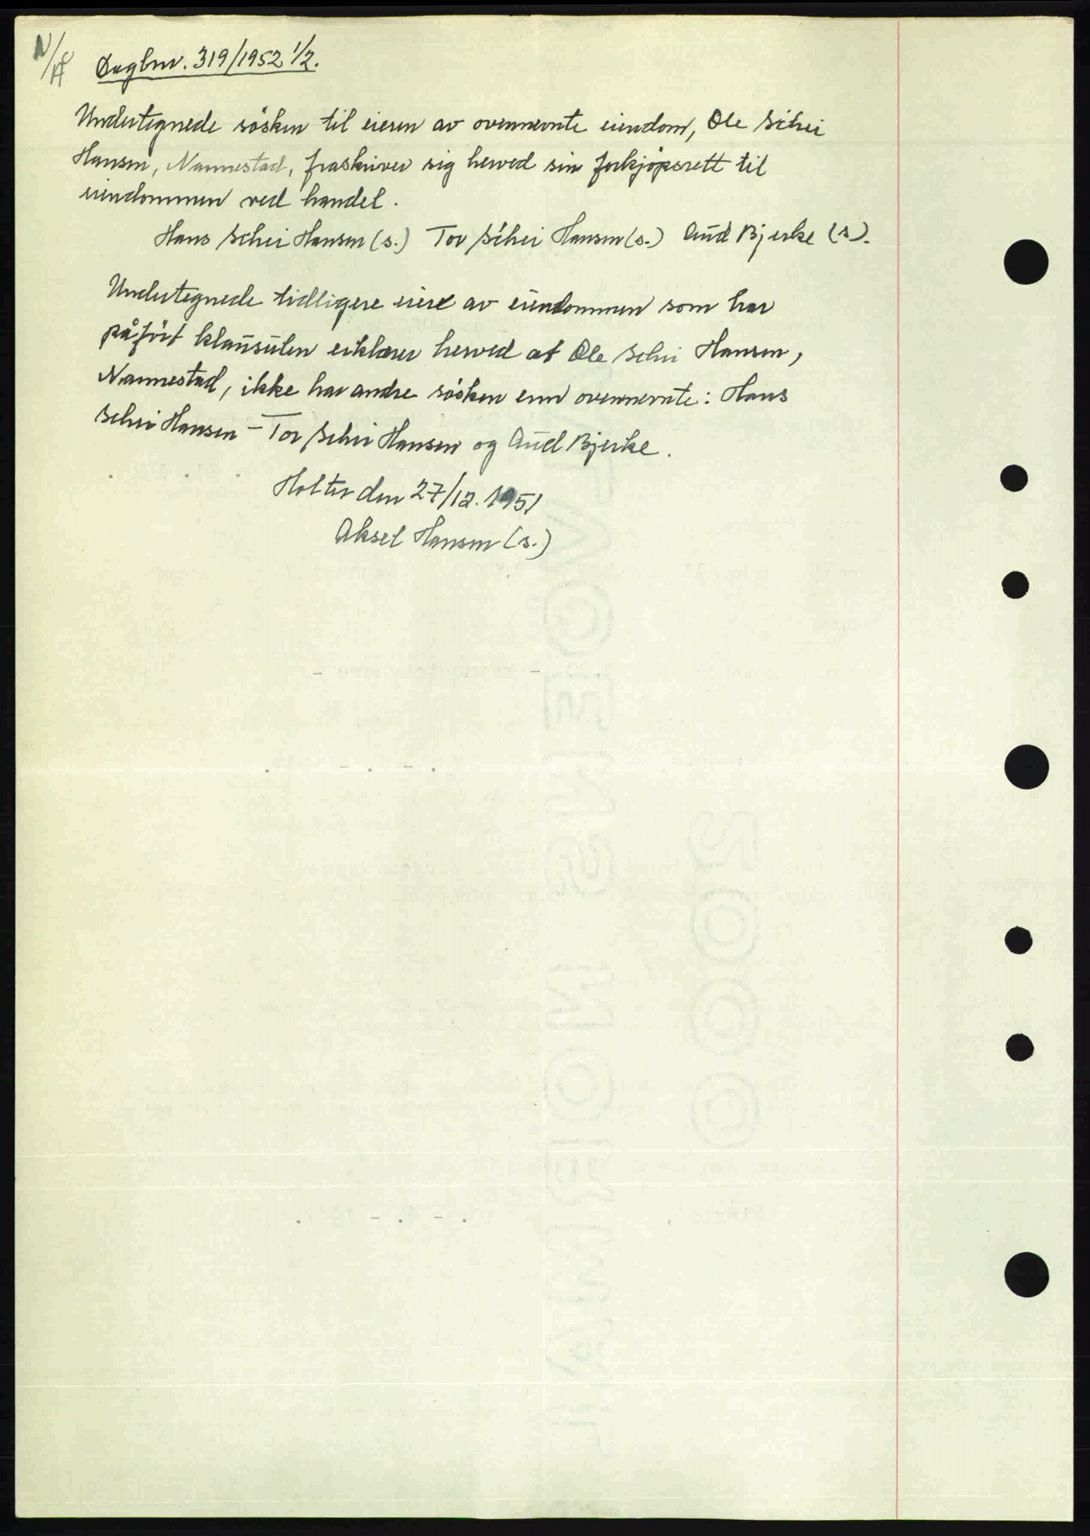 N/A
Dagbnr. 319/1952 1/2.
Undertegnede søsken til eieren av ovennevnte eiendom, Ole Schei
Hansen, Nannestad, fraskriver sig herved sin forkjøpsrett til
eiendommen ved handel.
Hans Schei Hansen (s.) Tor Schei Hansen (s.) Aud Bjerke (s).
Undertegnede tidligere eiere av eiendommen som har
påført klausulen erklærer herved at Ole Schei Hansen,
Nannestad, ikke har andre søsken enn ovennevnte: Hans
Schei Hansen – Tor Schei Hansen og Aud Bjerke.
Holter den 27/12. 1951
Aksel Hansen (s.)